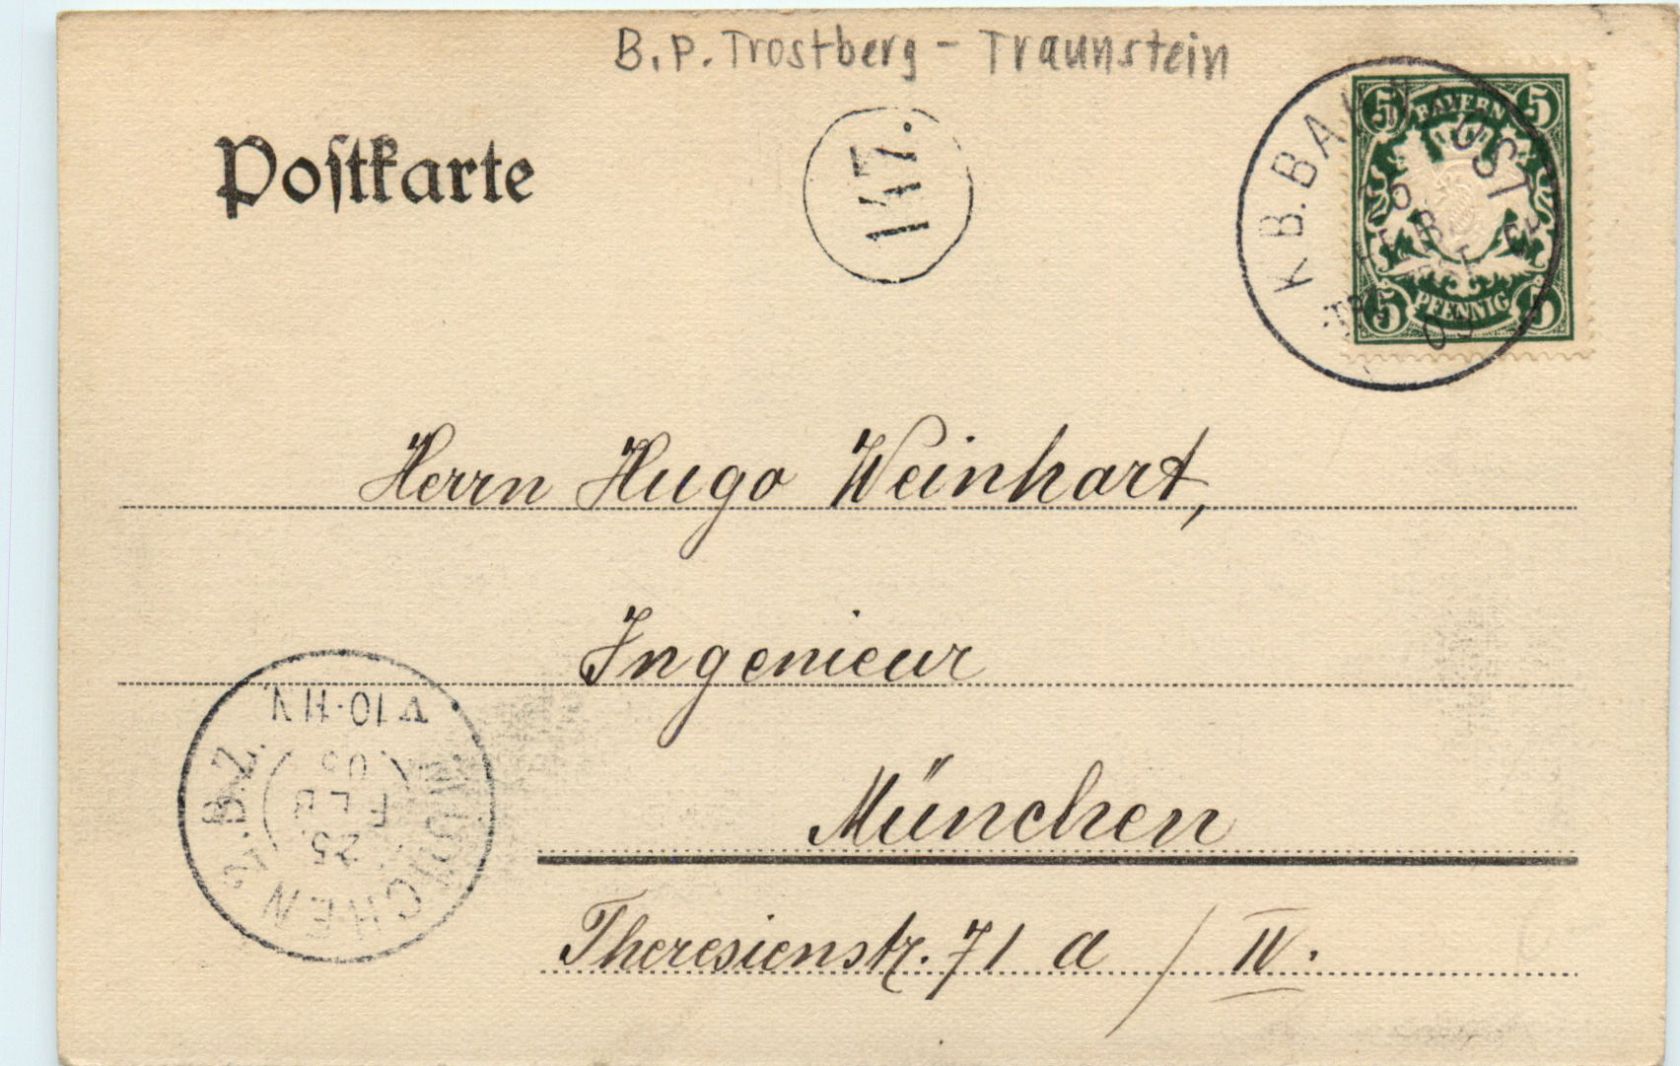 B.P. Trostberg - Traunstein
Postkarte
147.
K.B.BAHNPOST
FEB
5 BAYERN 5
5 PFENNIG 5
Herrn Hugo Weinhart,
Ingenieur
München
Theresienstr. 71 a / IV.
MÜNCHEN 2. B.Z.
25.
FEB
V 10-11 V.